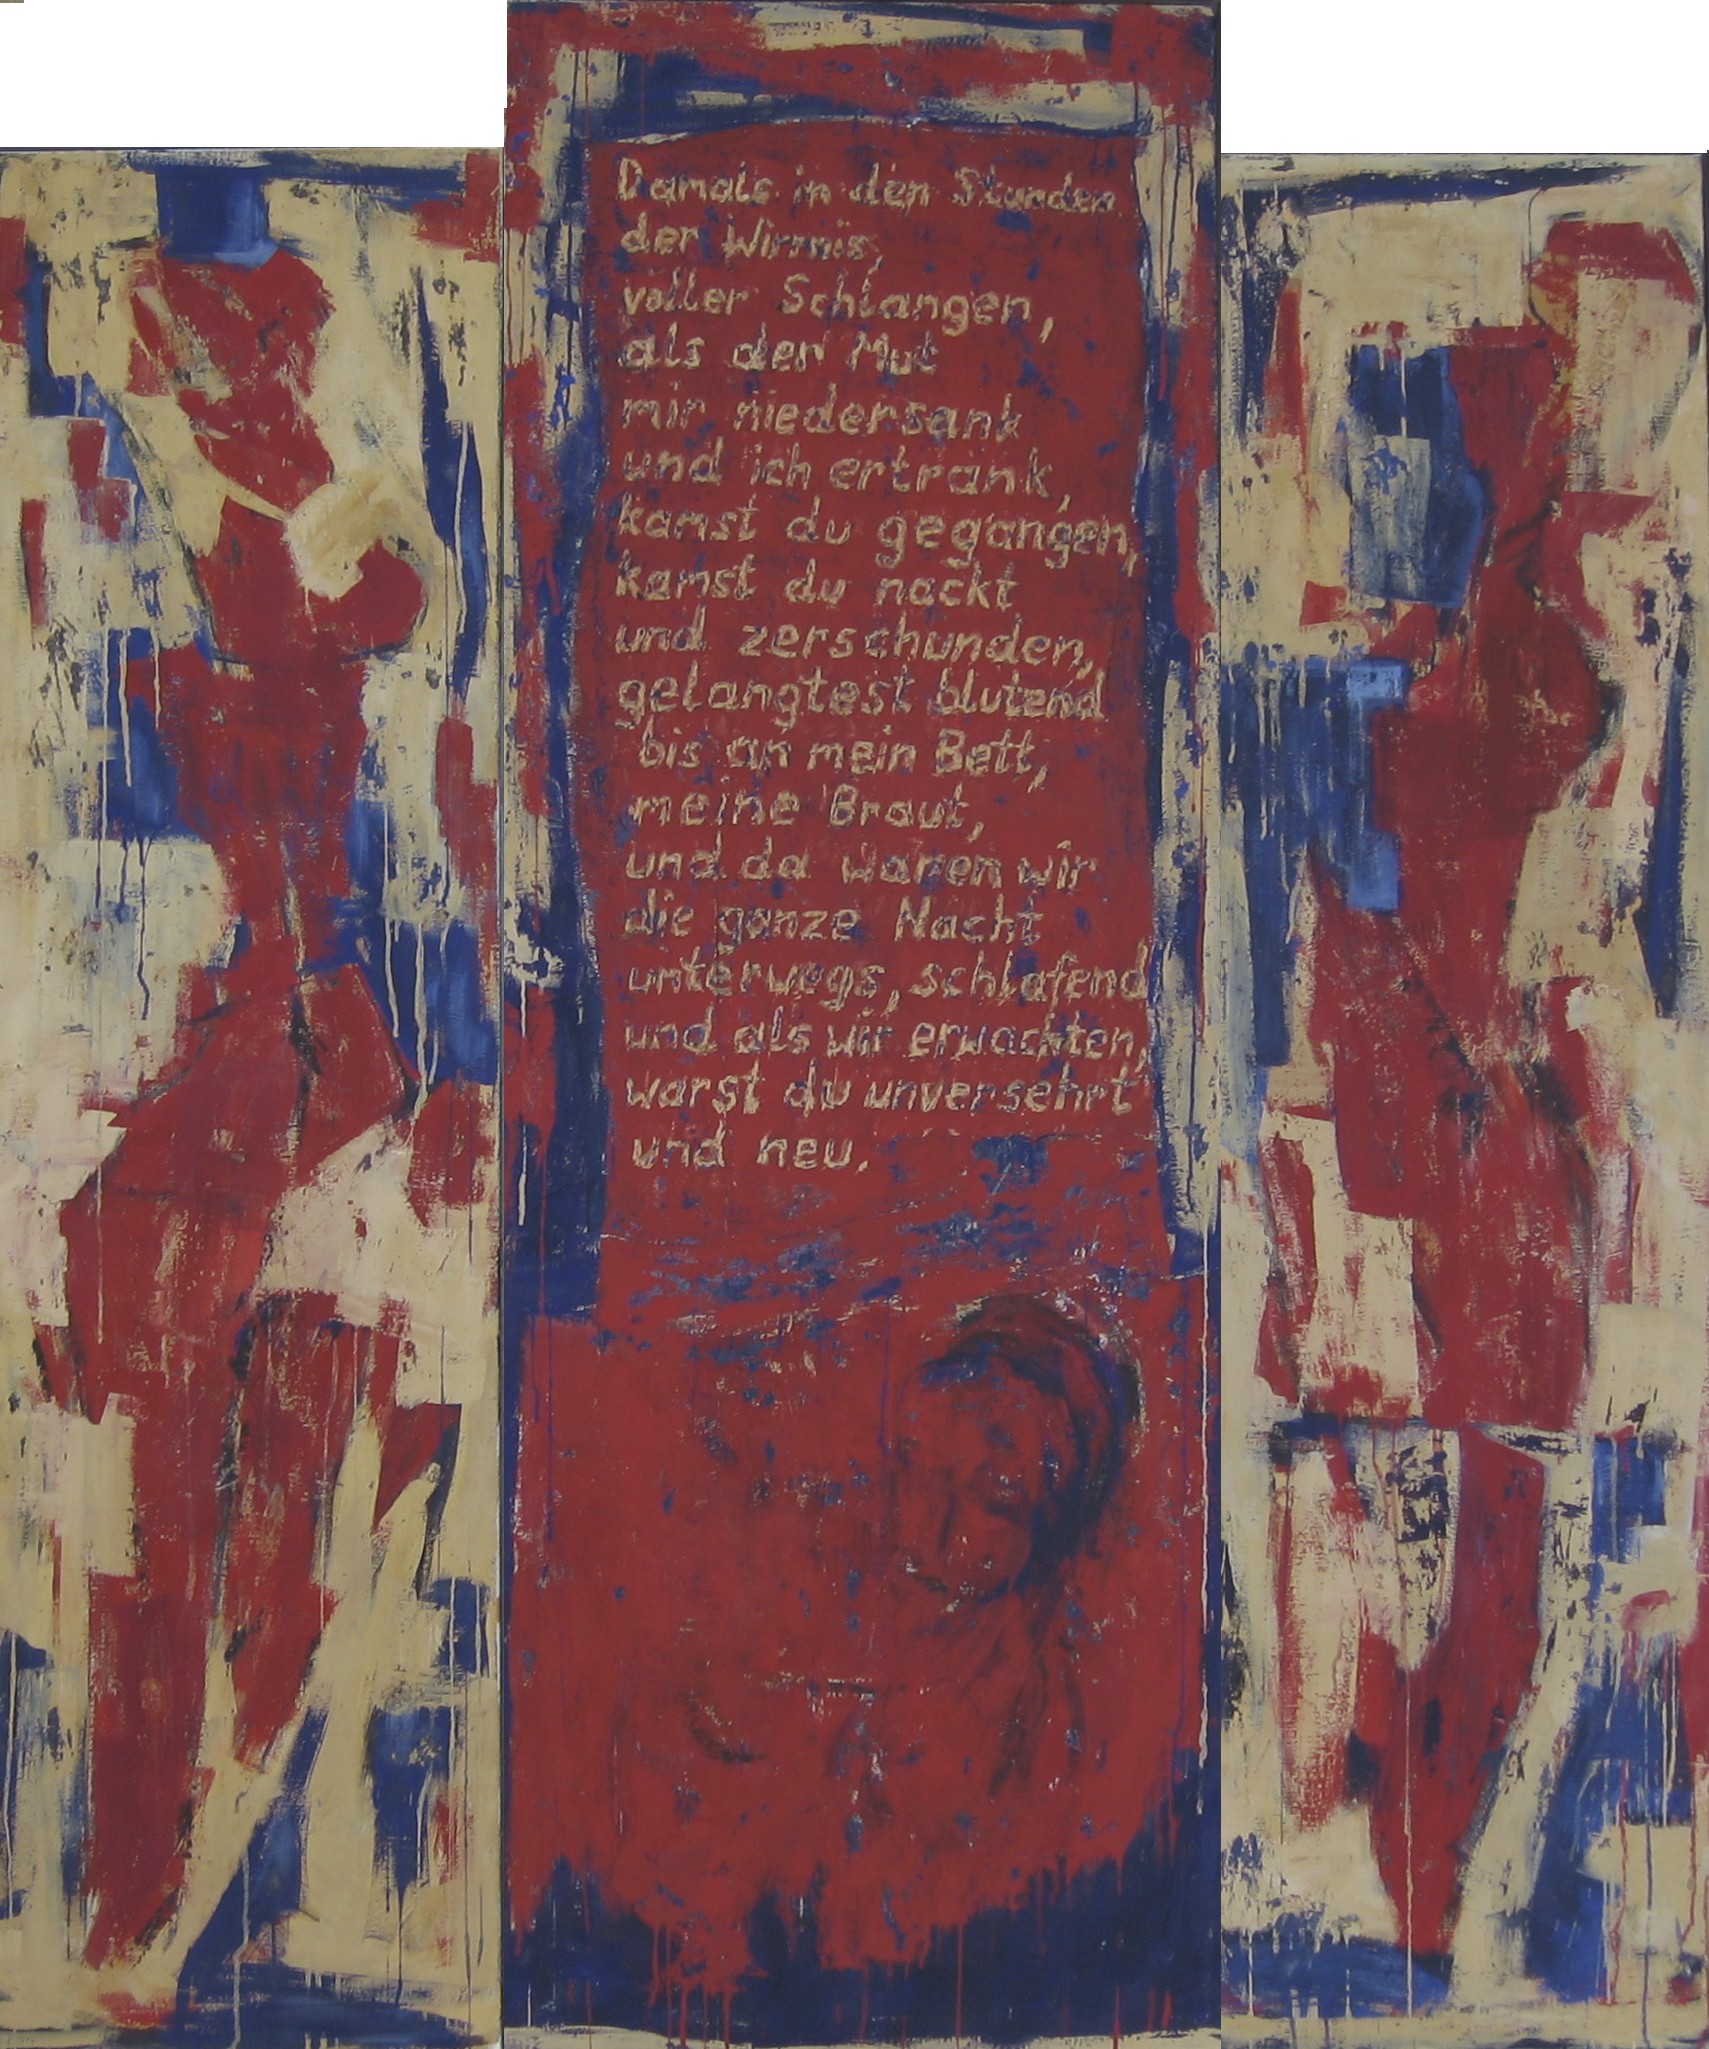 Damals in den Stunden
der Wirrnis,
voller Schlangen,
als der Mut
mir niedersank
und ich ertrank,
kamst du gegangen,
kamst du nackt
und zerschunden,
gelangtest blutend
bis an mein Bett,
meine Braut,
und da waren wir
die ganze Nacht
unterwegs, schlafend
und als wir erwachten,
warst du unversehrt
und neu.